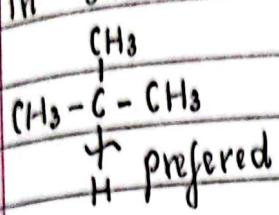 in
CH3
CH3-C-CH3
H prefered